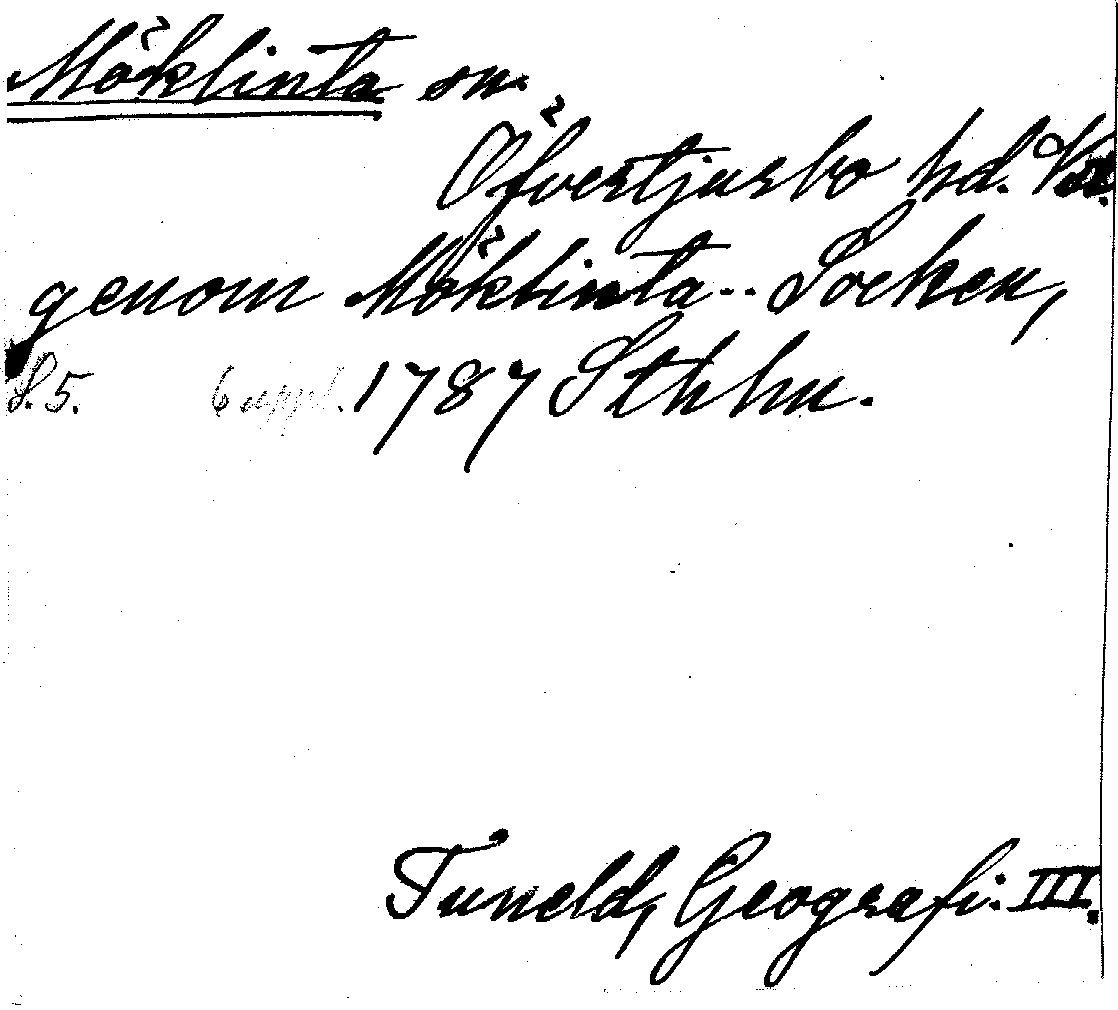 Möklinta sn.
Öfvertjurbo hd.
genom Möklinta-- Socken,
S. 5. 6 uppl. 1787 Sthlm.
Tuneld, Geografi. III.